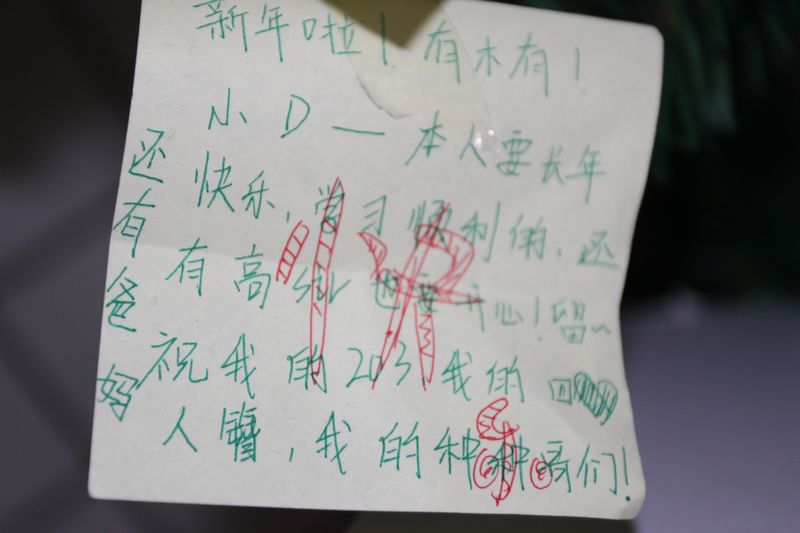 新年啦！有木有！
小D — 本人要长年
快乐，学习顺利的，还
有高 也要开心！留~
祝我的203 我的回
人 ，我的种种哥们！
还有爸妈